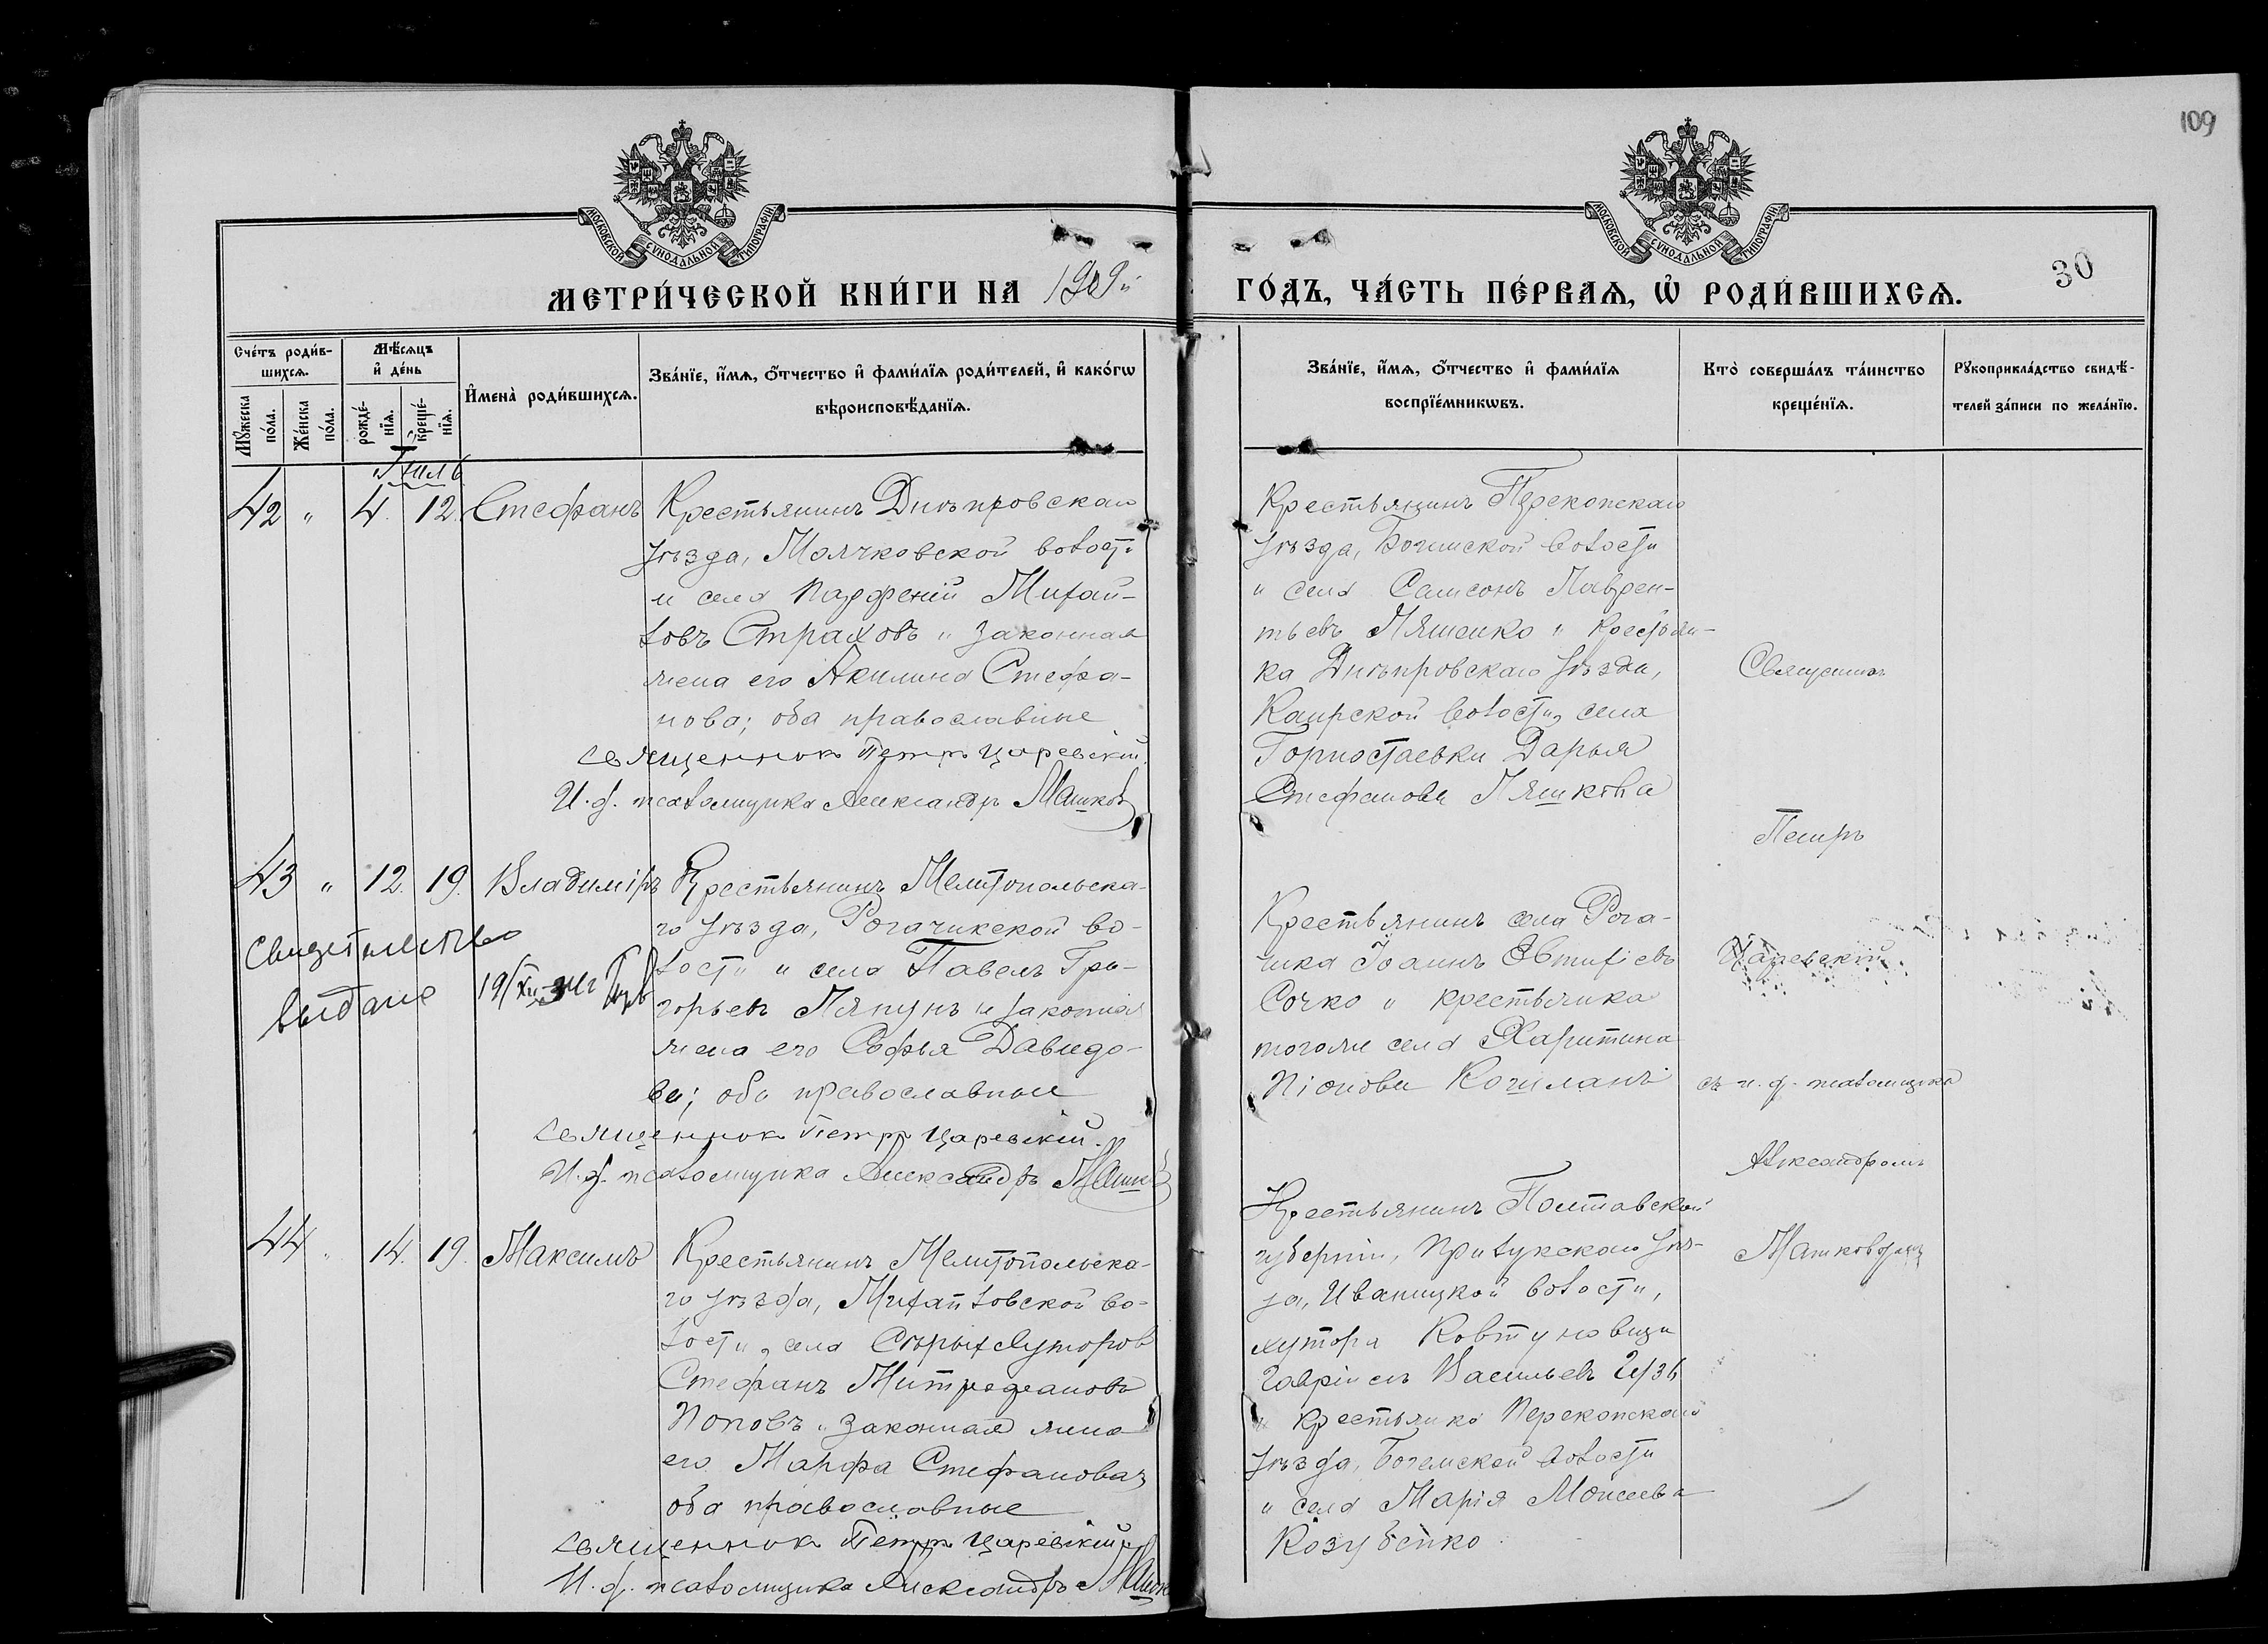 109
МОСКОВСКОЙ СѴНОДАЛЬНОЙ ТИПОГРАФІИ
МОСКОВСКОЙ СѴНОДАЛЬНОЙ ТИПОГРАФІИ
МЕТРИ́ЧЕСКОЙ КНИ́ГИ НА 1909й
ГО́ДЪ, ЧА́СТЬ ПЕ́РВАѦ, Ѡ҆ РОДИ́ВШИХСѦ.
30
Сче́тъ роди́в-
шихсѧ.
Мꙋ́жеска по́ла.
Же́нска по́ла.
Мѣ́сѧцъ
и҆ де́нь
рожде́-
нїѧ.
креще́-
нїѧ.
И҆мена̀ роди́вшихсѧ.
Зва́нїе, и҆́мѧ, ѻ҆́тчество и҆ фами́лїѧ роди́телей, и҆ како́гѡ
вѣроисповѣ́данїѧ.
Зва́нїе, и҆́мѧ, ѻ҆́тчество и҆ фами́лїѧ
воспрїе́мникѡвъ.
Кто̀ соверша́лъ та́инство
креще́нїѧ.
Рꙋкоприкла́дство свидѣ́-
телей за́писи по жела́нїю.
Іюль
42 " 4. 12. Стефанъ
Крестьянинъ Днѣпровскаго
уѣзда, Моячковской волости
и села Парфеній Михай-
ловъ Страховъ и законная
жена его Акилина Стефа-
нова; оба православные
священник Петръ Царевскій.
И. д. псаломщика Александръ Машков
Крестьянинъ Перекопскаго
уѣзда, Богемской волости
и села Самсонъ Лаврен-
тьевъ Ляшенко и крестьян-
ка Днѣпровскаго уѣзда,
Каирской волости, села
Горностаевки Дарья
Стефанова Ляшкова
43 " 12. 19. Владиміръ
Крестьянинъ Мелитопольска-
го уѣзда, Рогачикской во-
лости и села Павелъ Гри-
горьевъ Ляпунъ и законная
жена его Софья Давидо-
ва; оба православные
священник Петръ Царевскій.
И. д. псаломщика Александръ Машков
Свидетельство
выдано
Крестьянинъ села Рога-
чика Іоаннъ Евтихіевъ
Сочко и крестьянка
тогоже села Харитина
Піонова
44 " 14. 19. Максимъ
Крестьянинъ Мелитопольска-
го уѣзда, Михайловской во-
лости, села Старыхъ Хуторов
Стефанъ Митрофановъ
Поповъ и законная жена
его Марфа Стефанова,
оба православные
священник Петръ Царевскій
И. д. псаломщика Александръ Машк
Крестьянинъ Полтавской
губерніи, Прилукскаго уѣз-
да, Иваницкой волости,
хутора Ковтуновщи
Гавріилъ Васильевъ
и крестьянка Перекопскаго
уѣзда, Богемской волости
и села Марія Моисеева
Козубенко
Священникъ
Петръ
Царевскій
съ и. д. псаломщика
Александромъ
Машковымъ